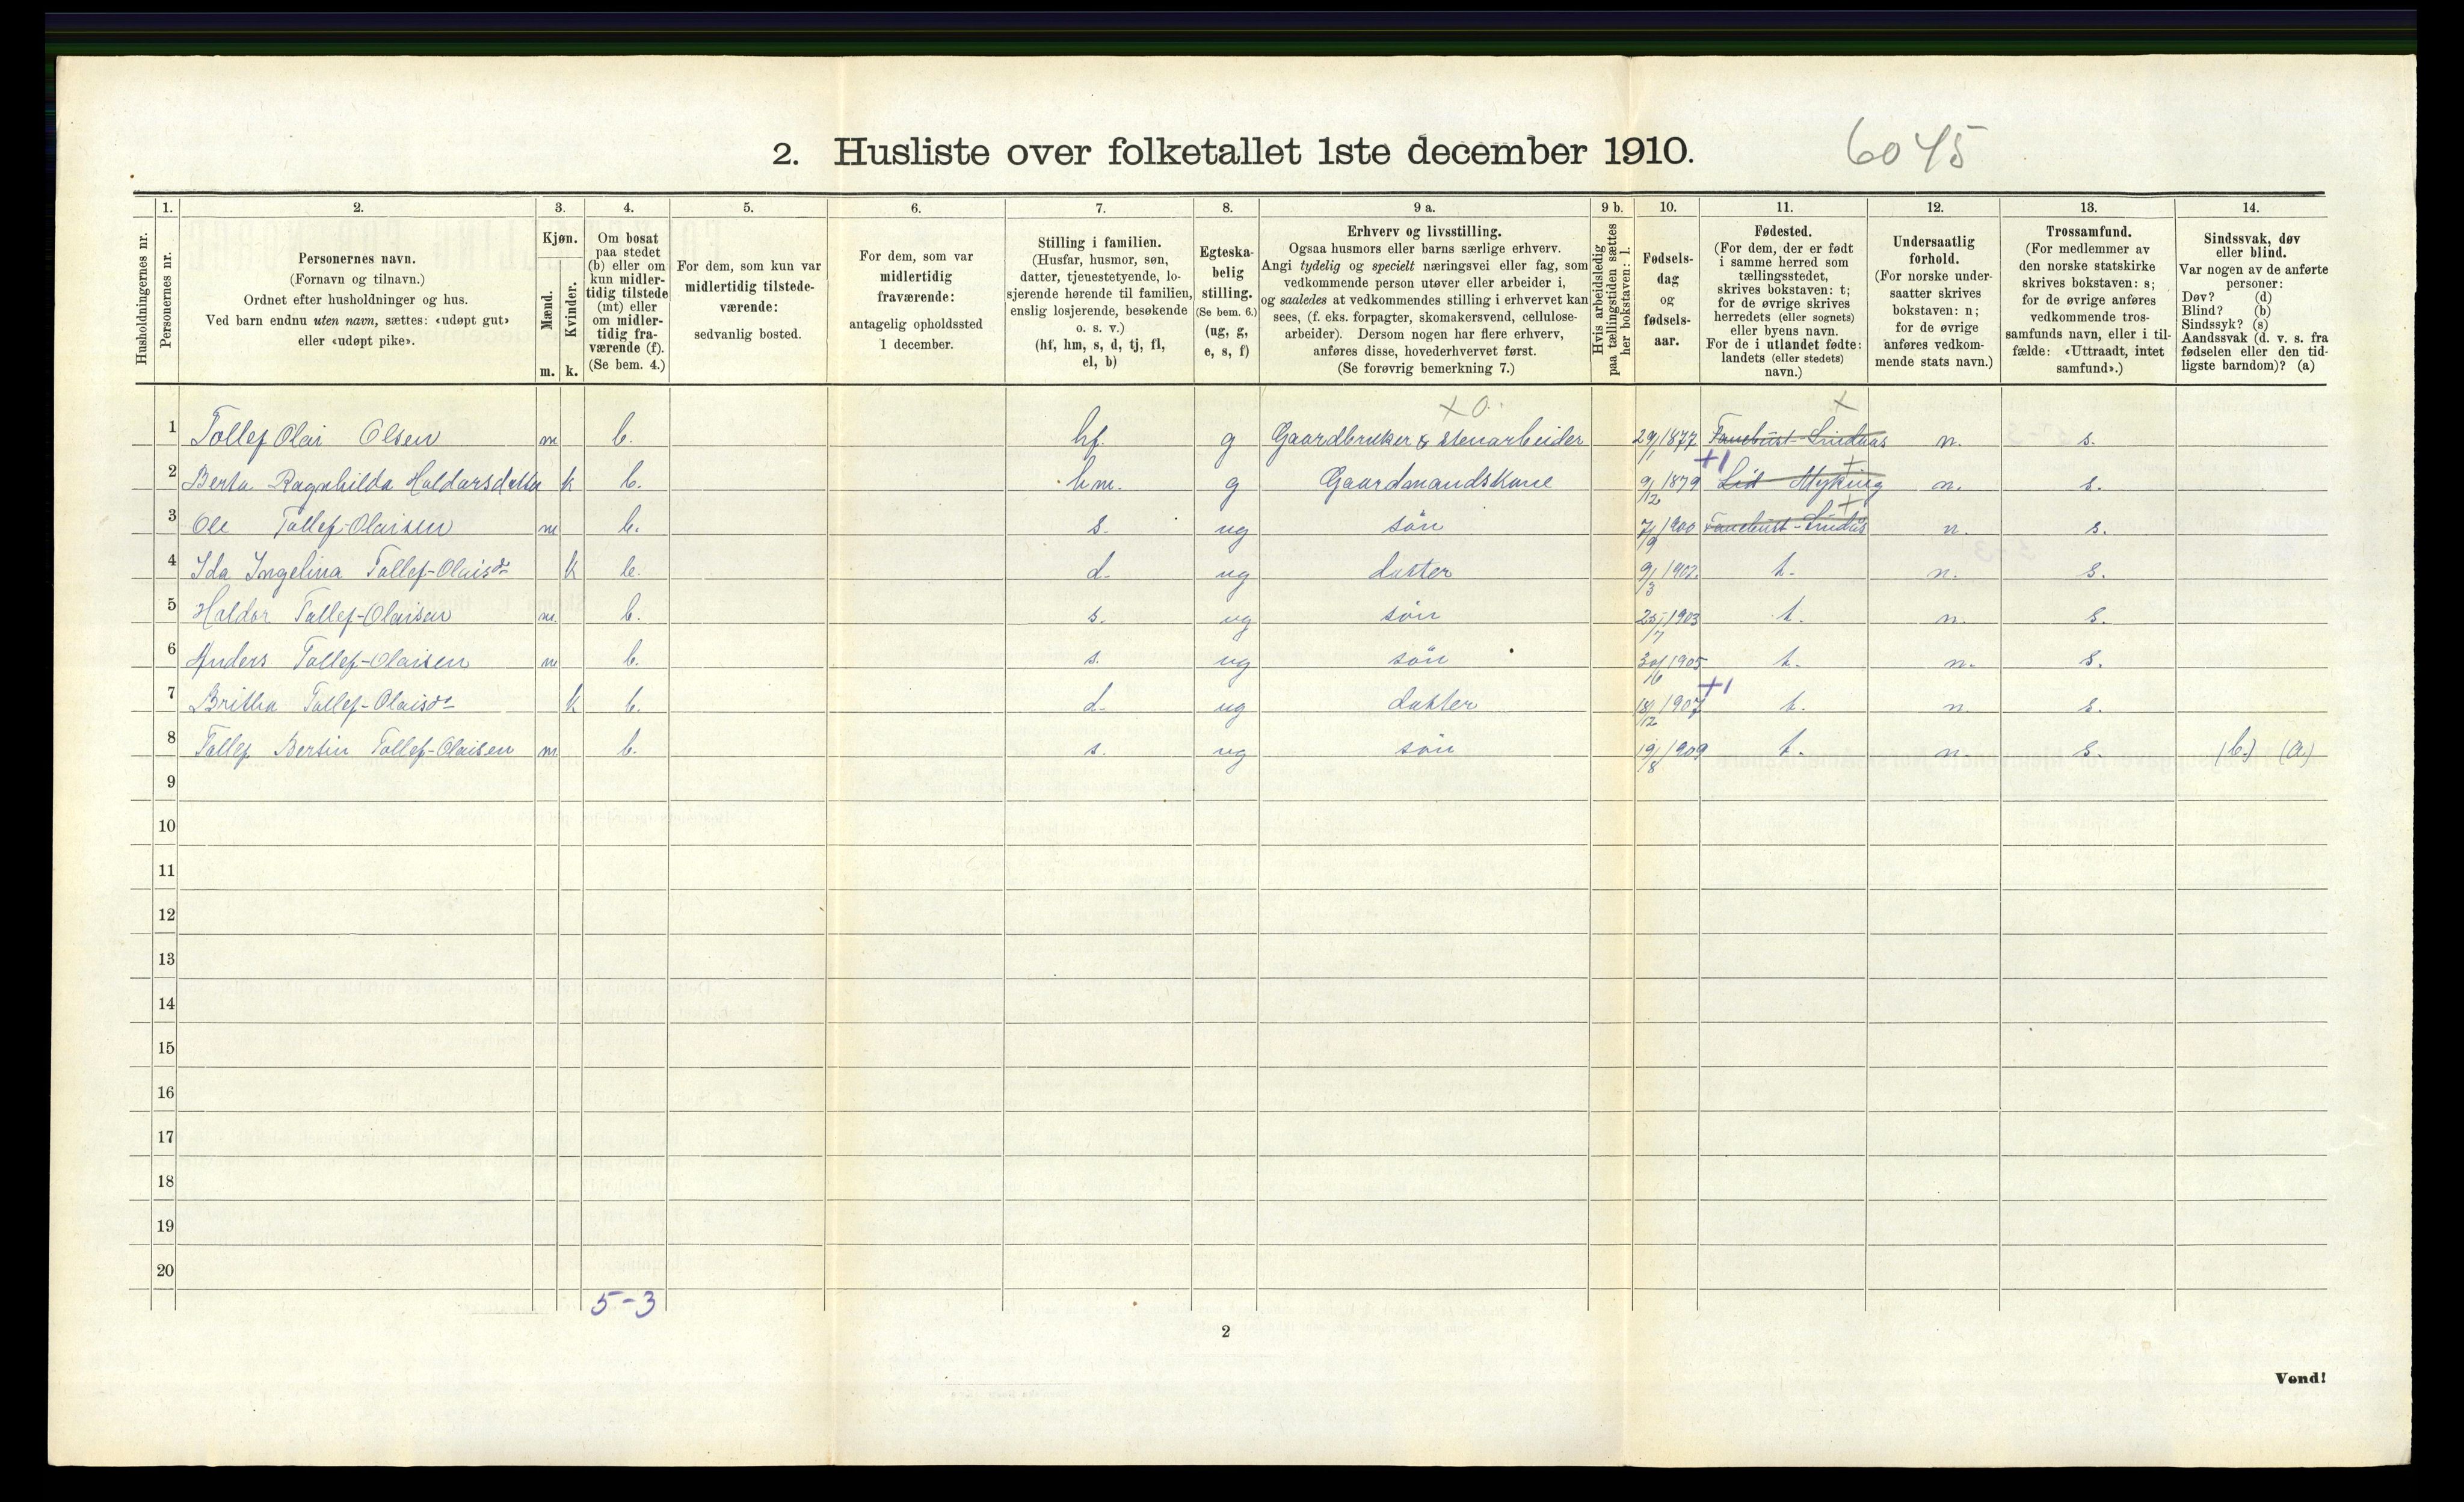 2. Husliste over folketallet 1ste december 1910. 6045
1. 2. 3. 4. 5. 6. 7. 8. 9 a. 9 b. 10. 11. 12. 13. 14.
Husholdningernes nr.
Personernes nr.
Personernes navn.
(Fornavn og tilnavn.)
Ordnet efter husholdninger og hus.
Ved barn endnu uten navn, sættes: «udøpt gut»
eller «udøpt pike».
Kjøn.
Mænd.
Kvinder.
m. k.
Om bosat
paa stedet
(b) eller om
kun midler-
tidig tilstede
(mt) eller
om midler-
tidig fra-
værende (f).
(Se bem. 4.)
For dem, som kun var
midlertidig tilstede-
værende:
sedvanlig bosted.
For dem, som var
midlertidig
fraværende:
antagelig opholdssted
1 december.
Stilling i familien.
(Husfar, husmor, søn,
datter, tjenestetyende, lo-
sjerende hørende til familien,
enslig losjerende, besøkende
o. s. v.)
(hf, hm, s, d, tj, fl,
el, b)
Egteska-
belig
stilling.
(Se bem. 6.)
(ug, g,
e, s, f)
Erhverv og livsstilling.
Ogsaa husmors eller barns særlige erhverv.
Angi tydelig og specielt næringsvei eller fag, som
vedkommende person utøver eller arbeider i,
og saaledes at vedkommendes stilling i erhvervet kan
sees, (f. eks. forpagter, skomakersvend, cellulose-
arbeider). Dersom nogen har flere erhverv,
anføres disse, hovederhvervet først.
(Se forøvrig bemerkning 7.)
Hvis arbeidsledig
paa tællingstiden sættes
her bokstaven: l.
Fødsels-
dag
og
fødsels-
aar.
Fødested.
(For dem, der er født
i samme herred som
tællingsstedet,
skrives bokstaven: t;
for de øvrige skrives
herredets (eller sognets)
eller byens navn.
For de i utlandet fødte:
landets (eller stedets)
navn.)
Undersaatlig
forhold.
(For norske under-
saatter skrives
bokstaven: n;
for de øvrige
anføres vedkom-
mende stats navn.)
Trossamfund.
(For medlemmer av
den norske statskirke
skrives bokstaven: s;
for de øvrige anføres
vedkommende tros-
samfunds navn, eller i til-
fælde: «Uttraadt, intet
samfund».)
Sindssvak, døv
eller blind.
Var nogen av de anførte
personer:
Døv? (d)
Blind? (b)
Sindssyk? (s)
Aandssvak (d. v. s. fra
fødselen eller den tid-
ligste barndom)? (a)
x 0. x
1 Tollef Olai Olsen m b. hf. g Gaardbruker & stenarbeider 29/1 1877 Fanebust-Lindaas n. s.
+1 +
2 Berta Ragnhilda Haldorsdatter k b. hm. g Gaardmandskone 9/12 1879 Lid Myking n. s.
+
3 Ole Tollef-Olaisen m b. s. ug søn 7/9 1900 Fanebust-Lindås n. s.
4 Ida Ingelina Tollef-Olaisdr k b. d. ug datter 9/3 1902 t. n. s.
5 Haldor Tollef-Olaisen m. b. s. ug søn 25/7 1903 t. n. s.
6 Anders Tollef-Olaisen m b. s. ug søn 1905 t. n. s.
+1
7 Britha Tollef-Olaisdr k b. d. ug datter 18/12 1907 t. n. s.
8 Tollef Bertin Tollef-Olaisen m b. s. ug søn 19/8 1909 t. n. s. (b.) (a)
9
10
11
12
13
14
15
16
17
18
19
20
5-3
2
Vend!